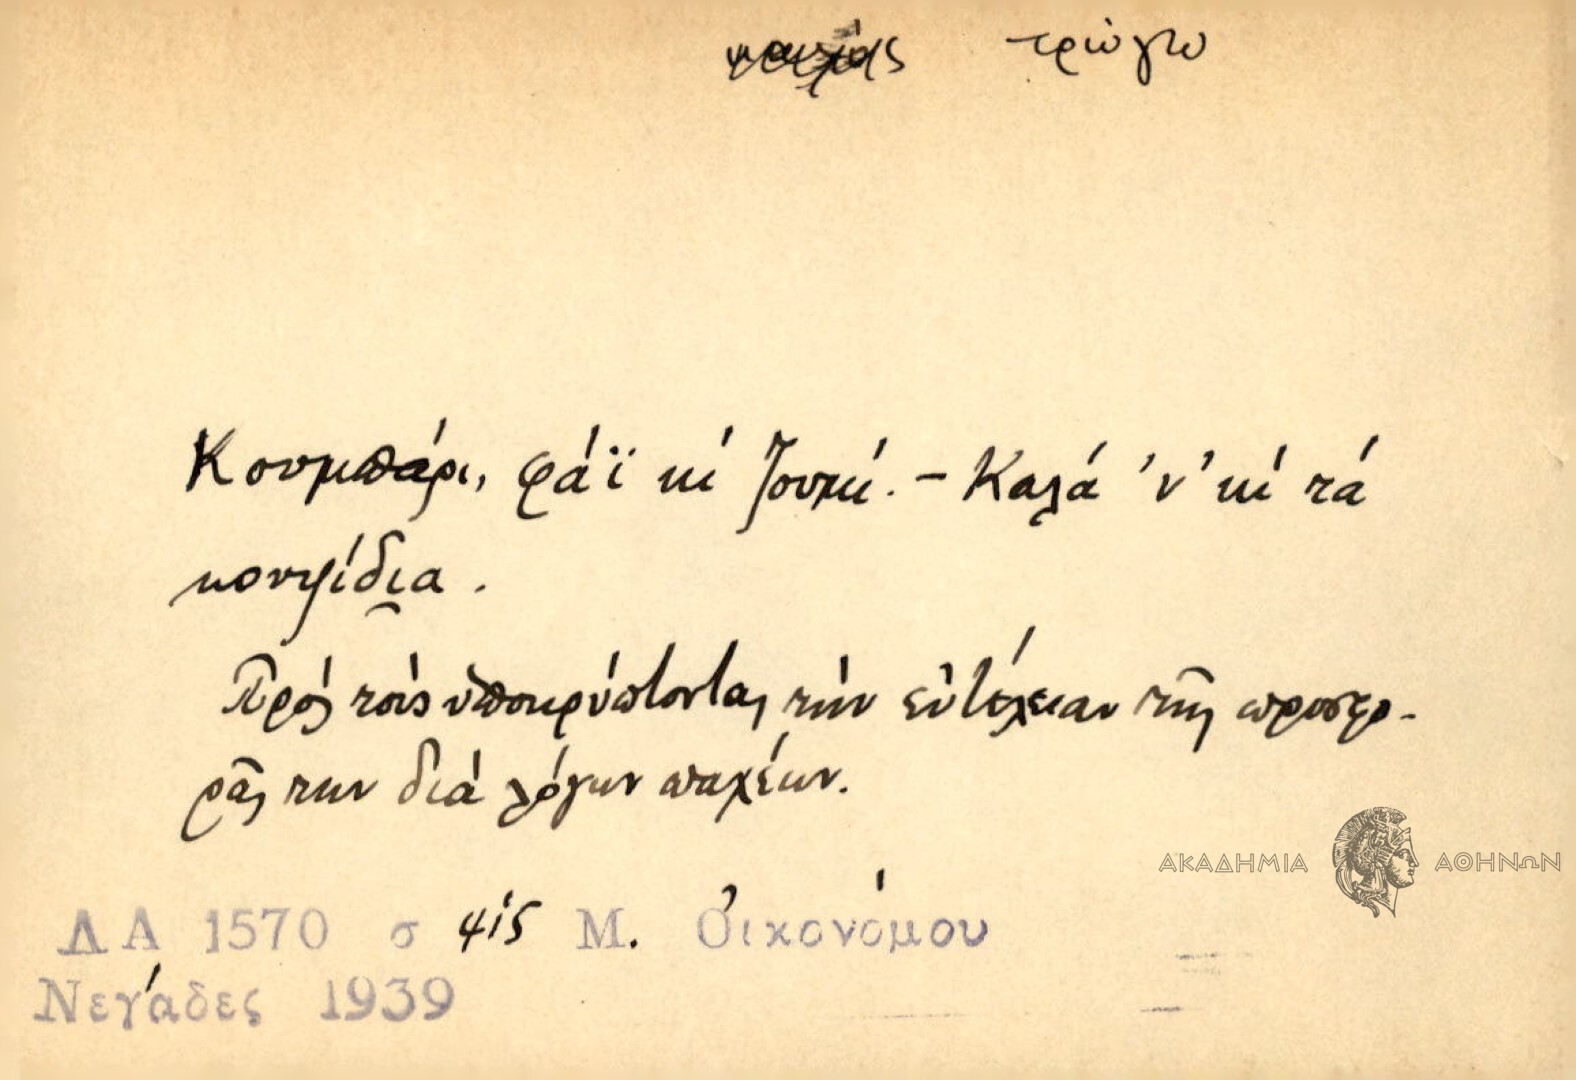 τρώγω
Κουμπάρι, φάϊ κί ζουμί. – Καλά 'ν' κί τά
κουψίδια.
Πρός τούς ὑποκρύπτοντας τήν εὐτέλειαν τῆς προσφο-
ρᾶς των διά λόγων παχέων.
ΑΚΑΔΗΜΙΑ ΑΘΗΝΩΝ
ΔΑ 1570 σ Μ. Οἰκονόμου
Νεγάδες 1939